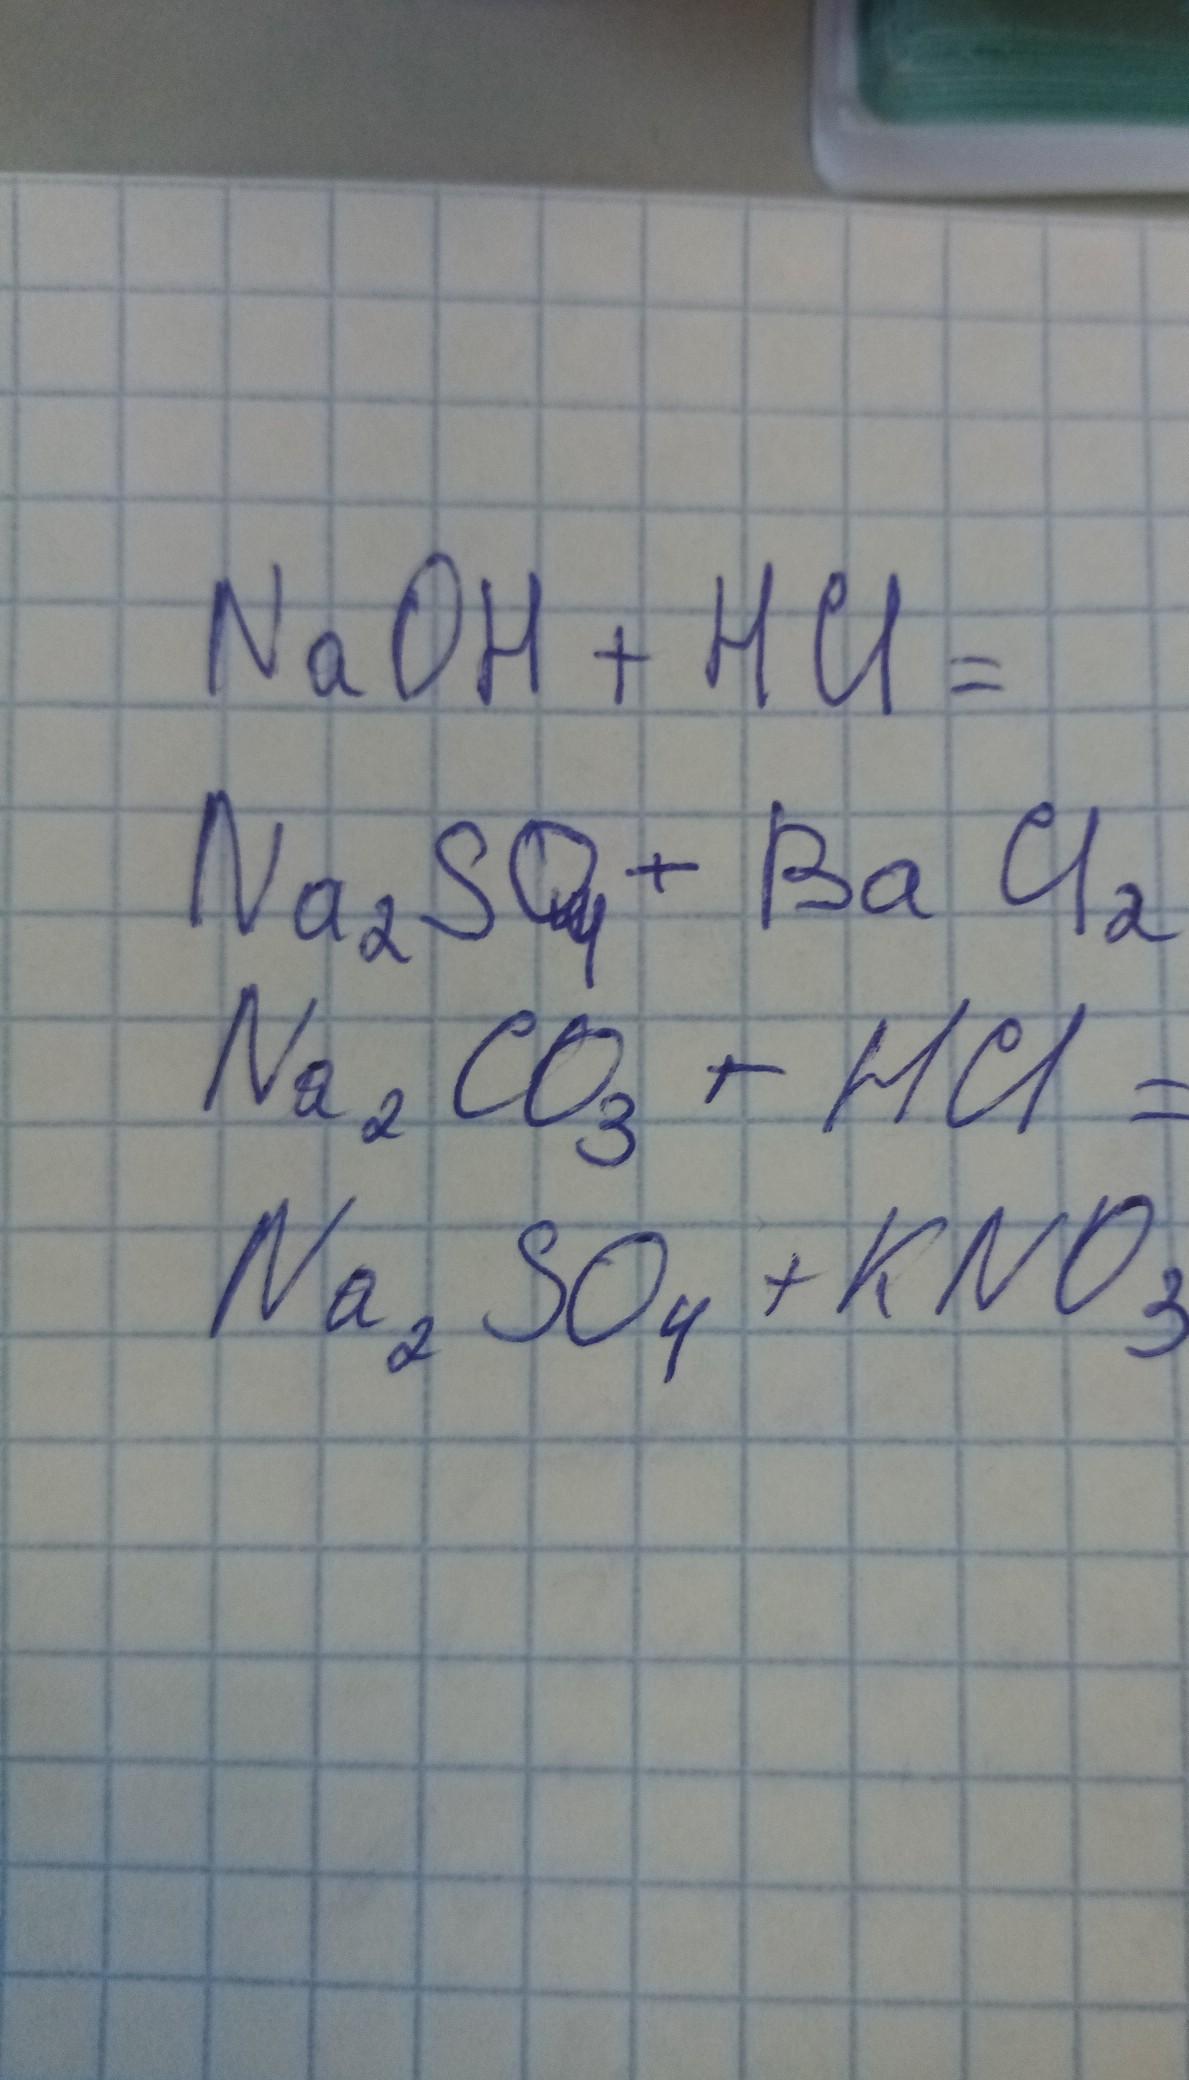 NaOH + HCl =
Na₂SO₄ + BaCl₂
Na₂CO₃ + HCl =
Na₂SO₄ + KNO₃